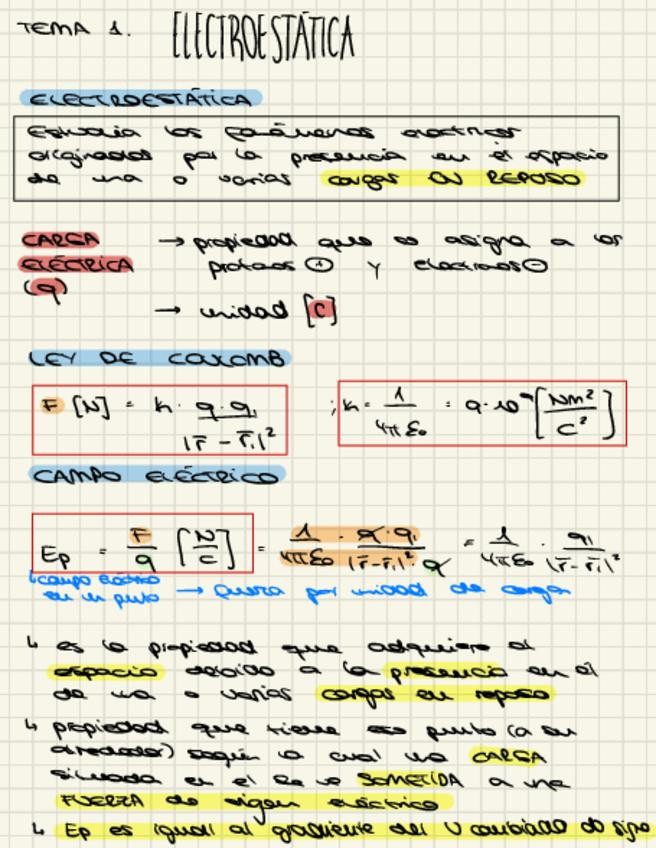 TEMA 1. ELECTROESTÁTICA
ELECTROESTÁTICA
Estudia los fenómenos eléctricos
originados por la presencia en el espacio
de una o varias cargas EN REPOSO
CARGA → propiedad que se asigna a los
ELÉCTRICA protones ⊕ y electrones ⊖
(q)
→ unidad [C]
LEY DE COULOMB
F [N] = k · q · q₁ / |r̄ - r̄₁|² ; k = 1 / 4πε₀ = 9·10⁹ [Nm² / C²]
CAMPO ELÉCTRICO
Ep = F / q [N / C] = 1 / 4πε₀ · q · q₁ / |r̄ - r̄₁|² · q = 1 / 4πε₀ · q₁ / |r̄ - r̄₁|²
↳ campo eléctrico
en un punto → fuerza por unidad de carga
↳ es la propiedad que adquiere el
espacio debido a la presencia en él
de una o varias cargas en reposo
↳ propiedad que tiene ese punto (a su
alrededor) según la cual una CARGA
situada en él se ve SOMETIDA a una
FUERZA de origen eléctrico
↳ Ep es igual al gradiente del U cambiado de signo